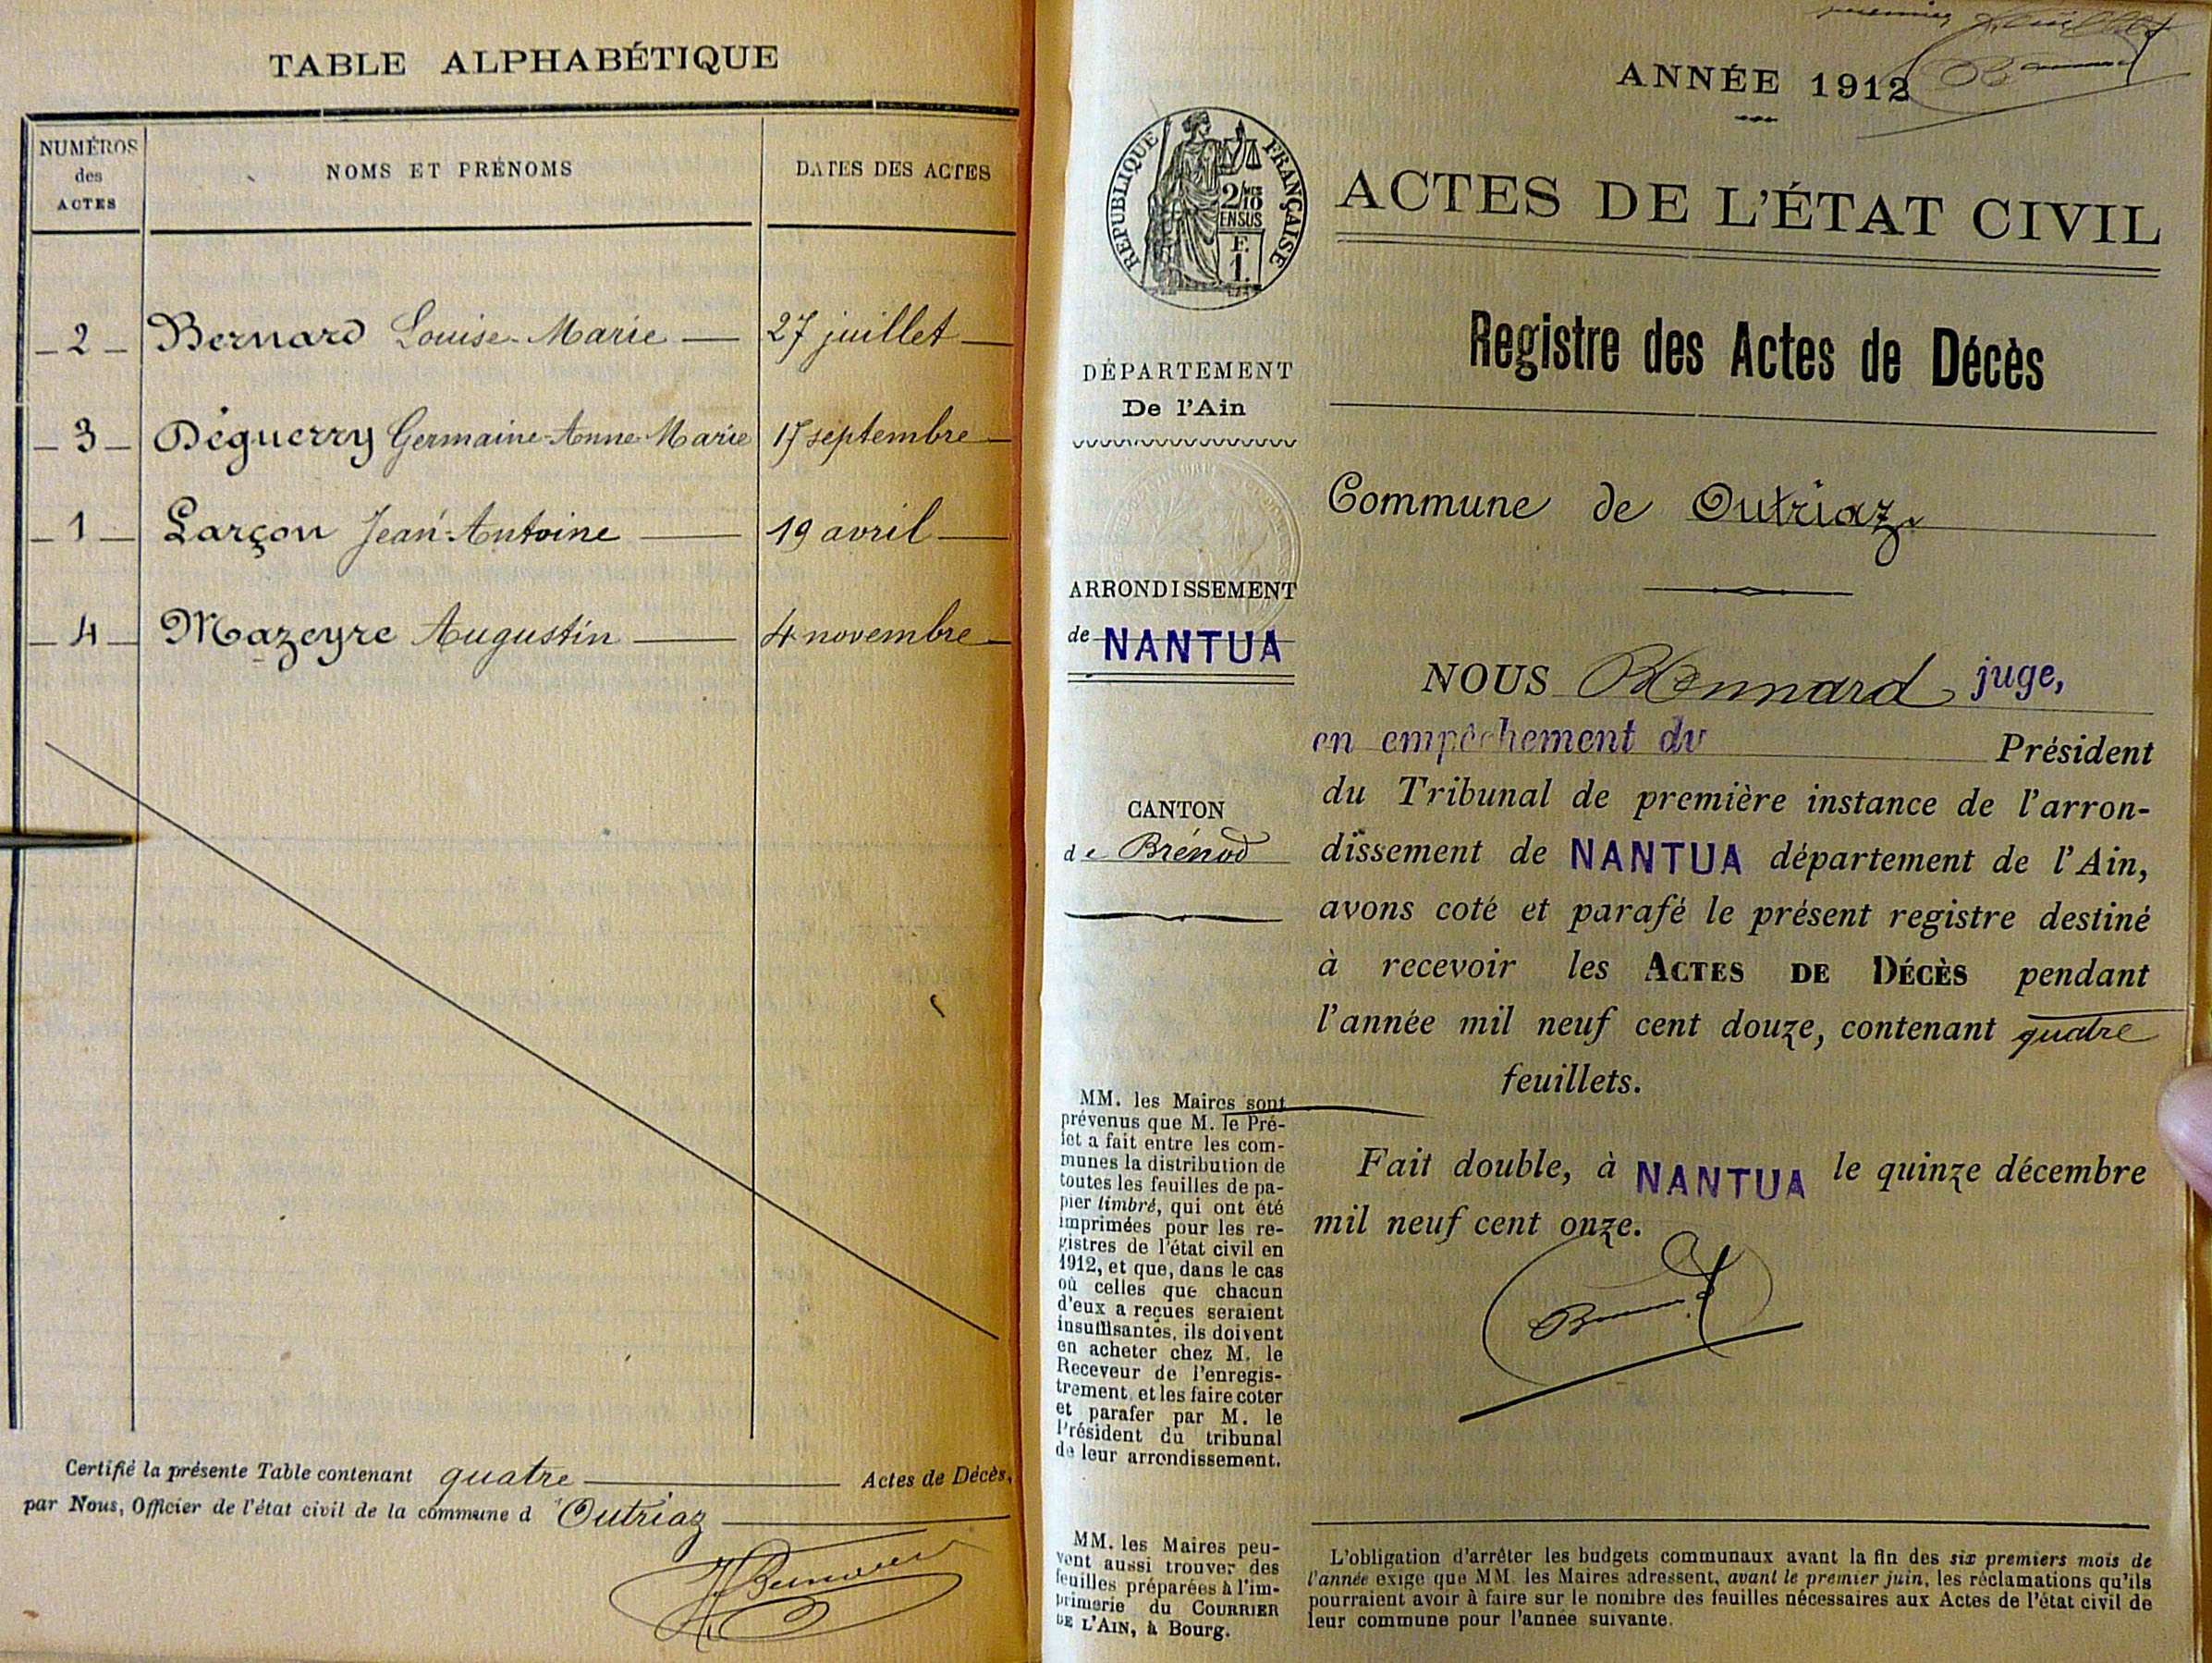 TABLE ALPHABÉTIQUE
NUMÉROS
des
ACTES
NOMS ET PRÉNOMS
DATES DES ACTES
2 Bernard Louise-Marie 27 juillet
3 Déguerry Germaine-Anne-Marie 17 septembre
1 Larçon Jean-Antoine 19 avril
4 Mazeyre Augustin 4 novembre
Certifié la présente Table contenant quatre Actes de Décès,
par Nous, Officier de l'état civil de la commune d'Outriaz
premier feuillet
ANNÉE 1912
RÉPUBLIQUE FRANÇAISE
2/10
EN SUS
F.
1.
ACTES DE L'ÉTAT CIVIL
Registre des Actes de Décès
DÉPARTEMENT
De l'Ain
ARRONDISSEMENT
de NANTUA
CANTON
de Brénod
MM. les Maires sont
prévenus que M. le Pré-
fet a fait entre les com-
munes la distribution de
toutes les feuilles de pa-
pier timbré, qui ont été
imprimées pour les re-
gistres de l'état civil en
1912, et que, dans le cas
où celles que chacun
d'eux a reçues seraient
insuffisantes, ils doivent
en acheter chez M. le
Receveur de l'enregis-
trement et les faire coter
et parafer par M. le
Président du tribunal
de leur arrondissement.
MM. les Maires peu-
vent aussi trouver des
feuilles préparées à l'im-
primerie du COURRIER
DE L'AIN, à Bourg.
Commune de Outriaz
NOUS juge,
en empêchement du Président
du Tribunal de première instance de l'arron-
dissement de NANTUA département de l'Ain,
avons coté et parafé le présent registre destiné
à recevoir les ACTES DE DÉCÈS pendant
l'année mil neuf cent douze, contenant quatre
feuillets.
Fait double, à NANTUA le quinze décembre
mil neuf cent onze.
L'obligation d'arrêter les budgets communaux avant la fin des six premiers mois de
l'année exige que MM. les Maires adressent, avant le premier juin, les réclamations qu'ils
pourraient avoir à faire sur le nombre des feuilles nécessaires aux Actes de l'état civil de
leur commune pour l'année suivante.